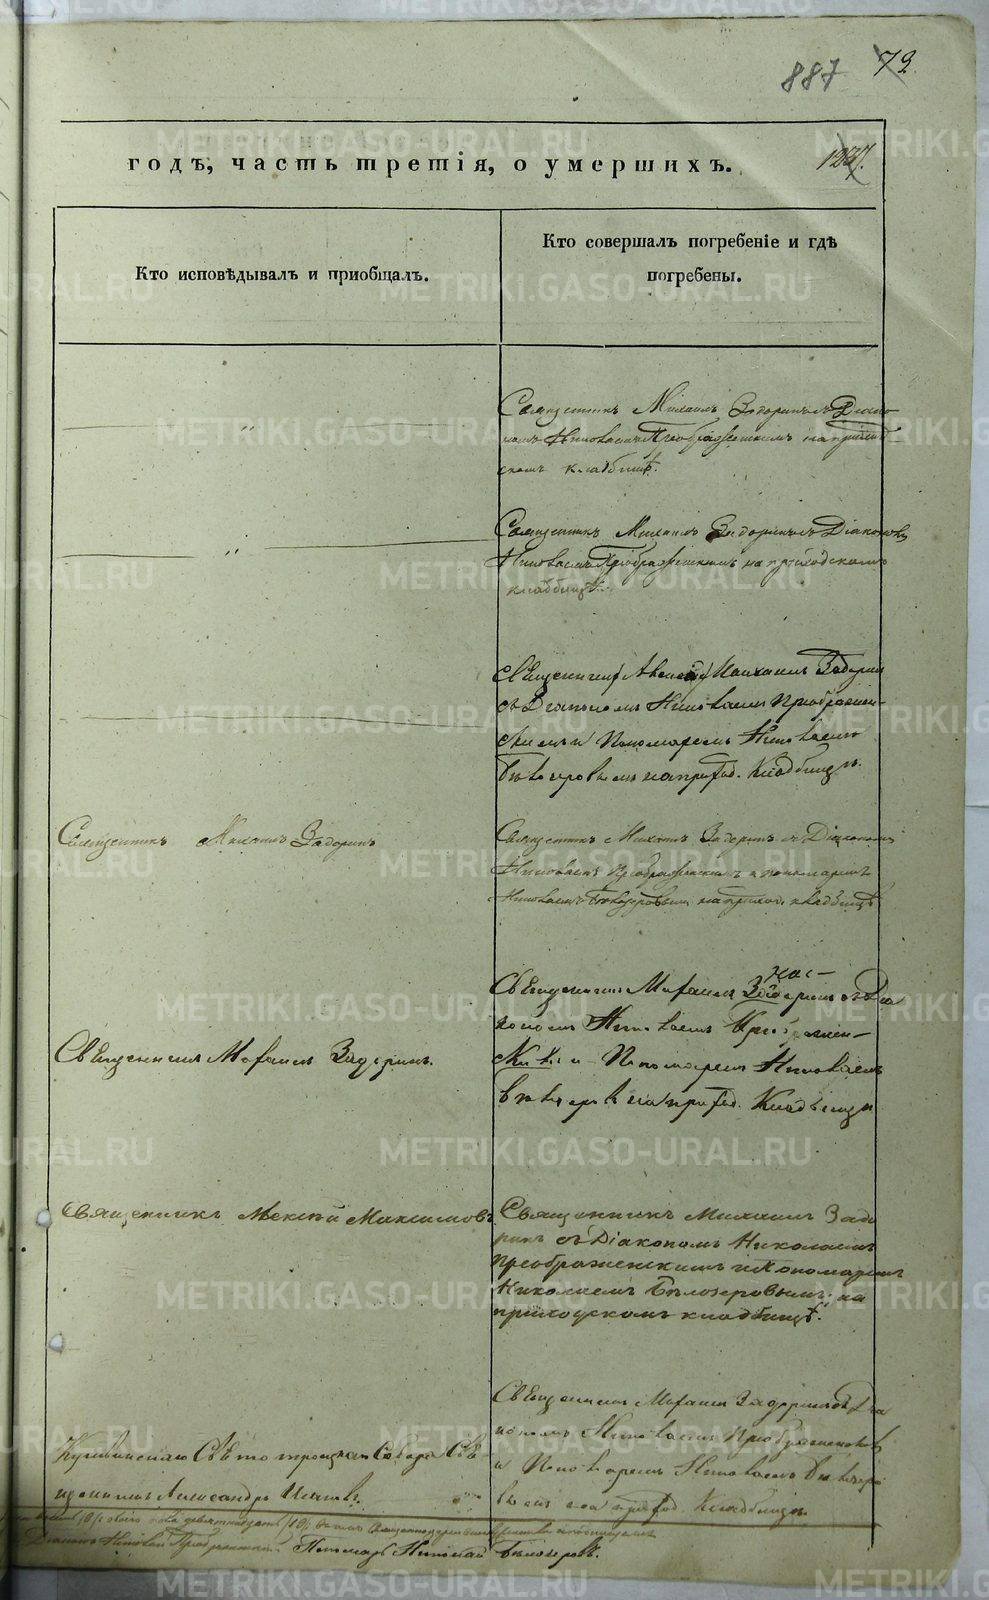 887 72
годъ, часть третія, о умершихъ.
Кто исповѣдывалъ и пріобщалъ.
Кто совершалъ погребеніе и гдѣ
погребены.
Священникъ Михаилъ Задоринъ съ Діако
номъ Николаемъ Преображенскимъ на приход
скомъ кладбищѣ.
Священникъ Михаилъ Задоринъ съ Діакономъ
Николаемъ Преображенскимъ на приходскомъ
кладбищѣ.
Священникъ Михаилъ Задорин
съ Діакономъ Николаемъ Преображен-
скимъ и Пономаремъ Николаемъ
на приход. Кладбищѣ.
Священникъ Михаилъ Задоринъ
Священникъ Михаилъ Задоринъ съ Діакономъ
Николаемъ Преображенскимъ и пономаремъ
Николаемъ Бѣлозеровымъ на приход. кладбищѣ
Священникъ Михаилъ Задоринъ съ Діа
кономъ Николаемъ Преображен-
и Пономаремъ Николаемъ
на приход. Кладбищѣ
Священникъ Михаилъ Задоринъ.
Священникъ Алексѣй Максимовъ
Священникъ Михаилъ Задо
ринъ съ Діакономъ Николаемъ
Преображенскимъ и Пономаремъ
Николаемъ Бѣлозеровымъ, на
приходскомъ кладбищѣ.
Священникъ Михаилъ Задоринъ съ Діа
кономъ Николаемъ Преображенскимъ
и Пономаремъ Николаемъ Бѣлозеро
вымъ на приход. Кладбищѣ.
Свято троицкаго Собора Свя-
щенникъ Александръ
Діаконъ Николай Преображенскій. Пономарь Николай Бѣлозеровъ.
METRIKI.GASO-URAL.RU